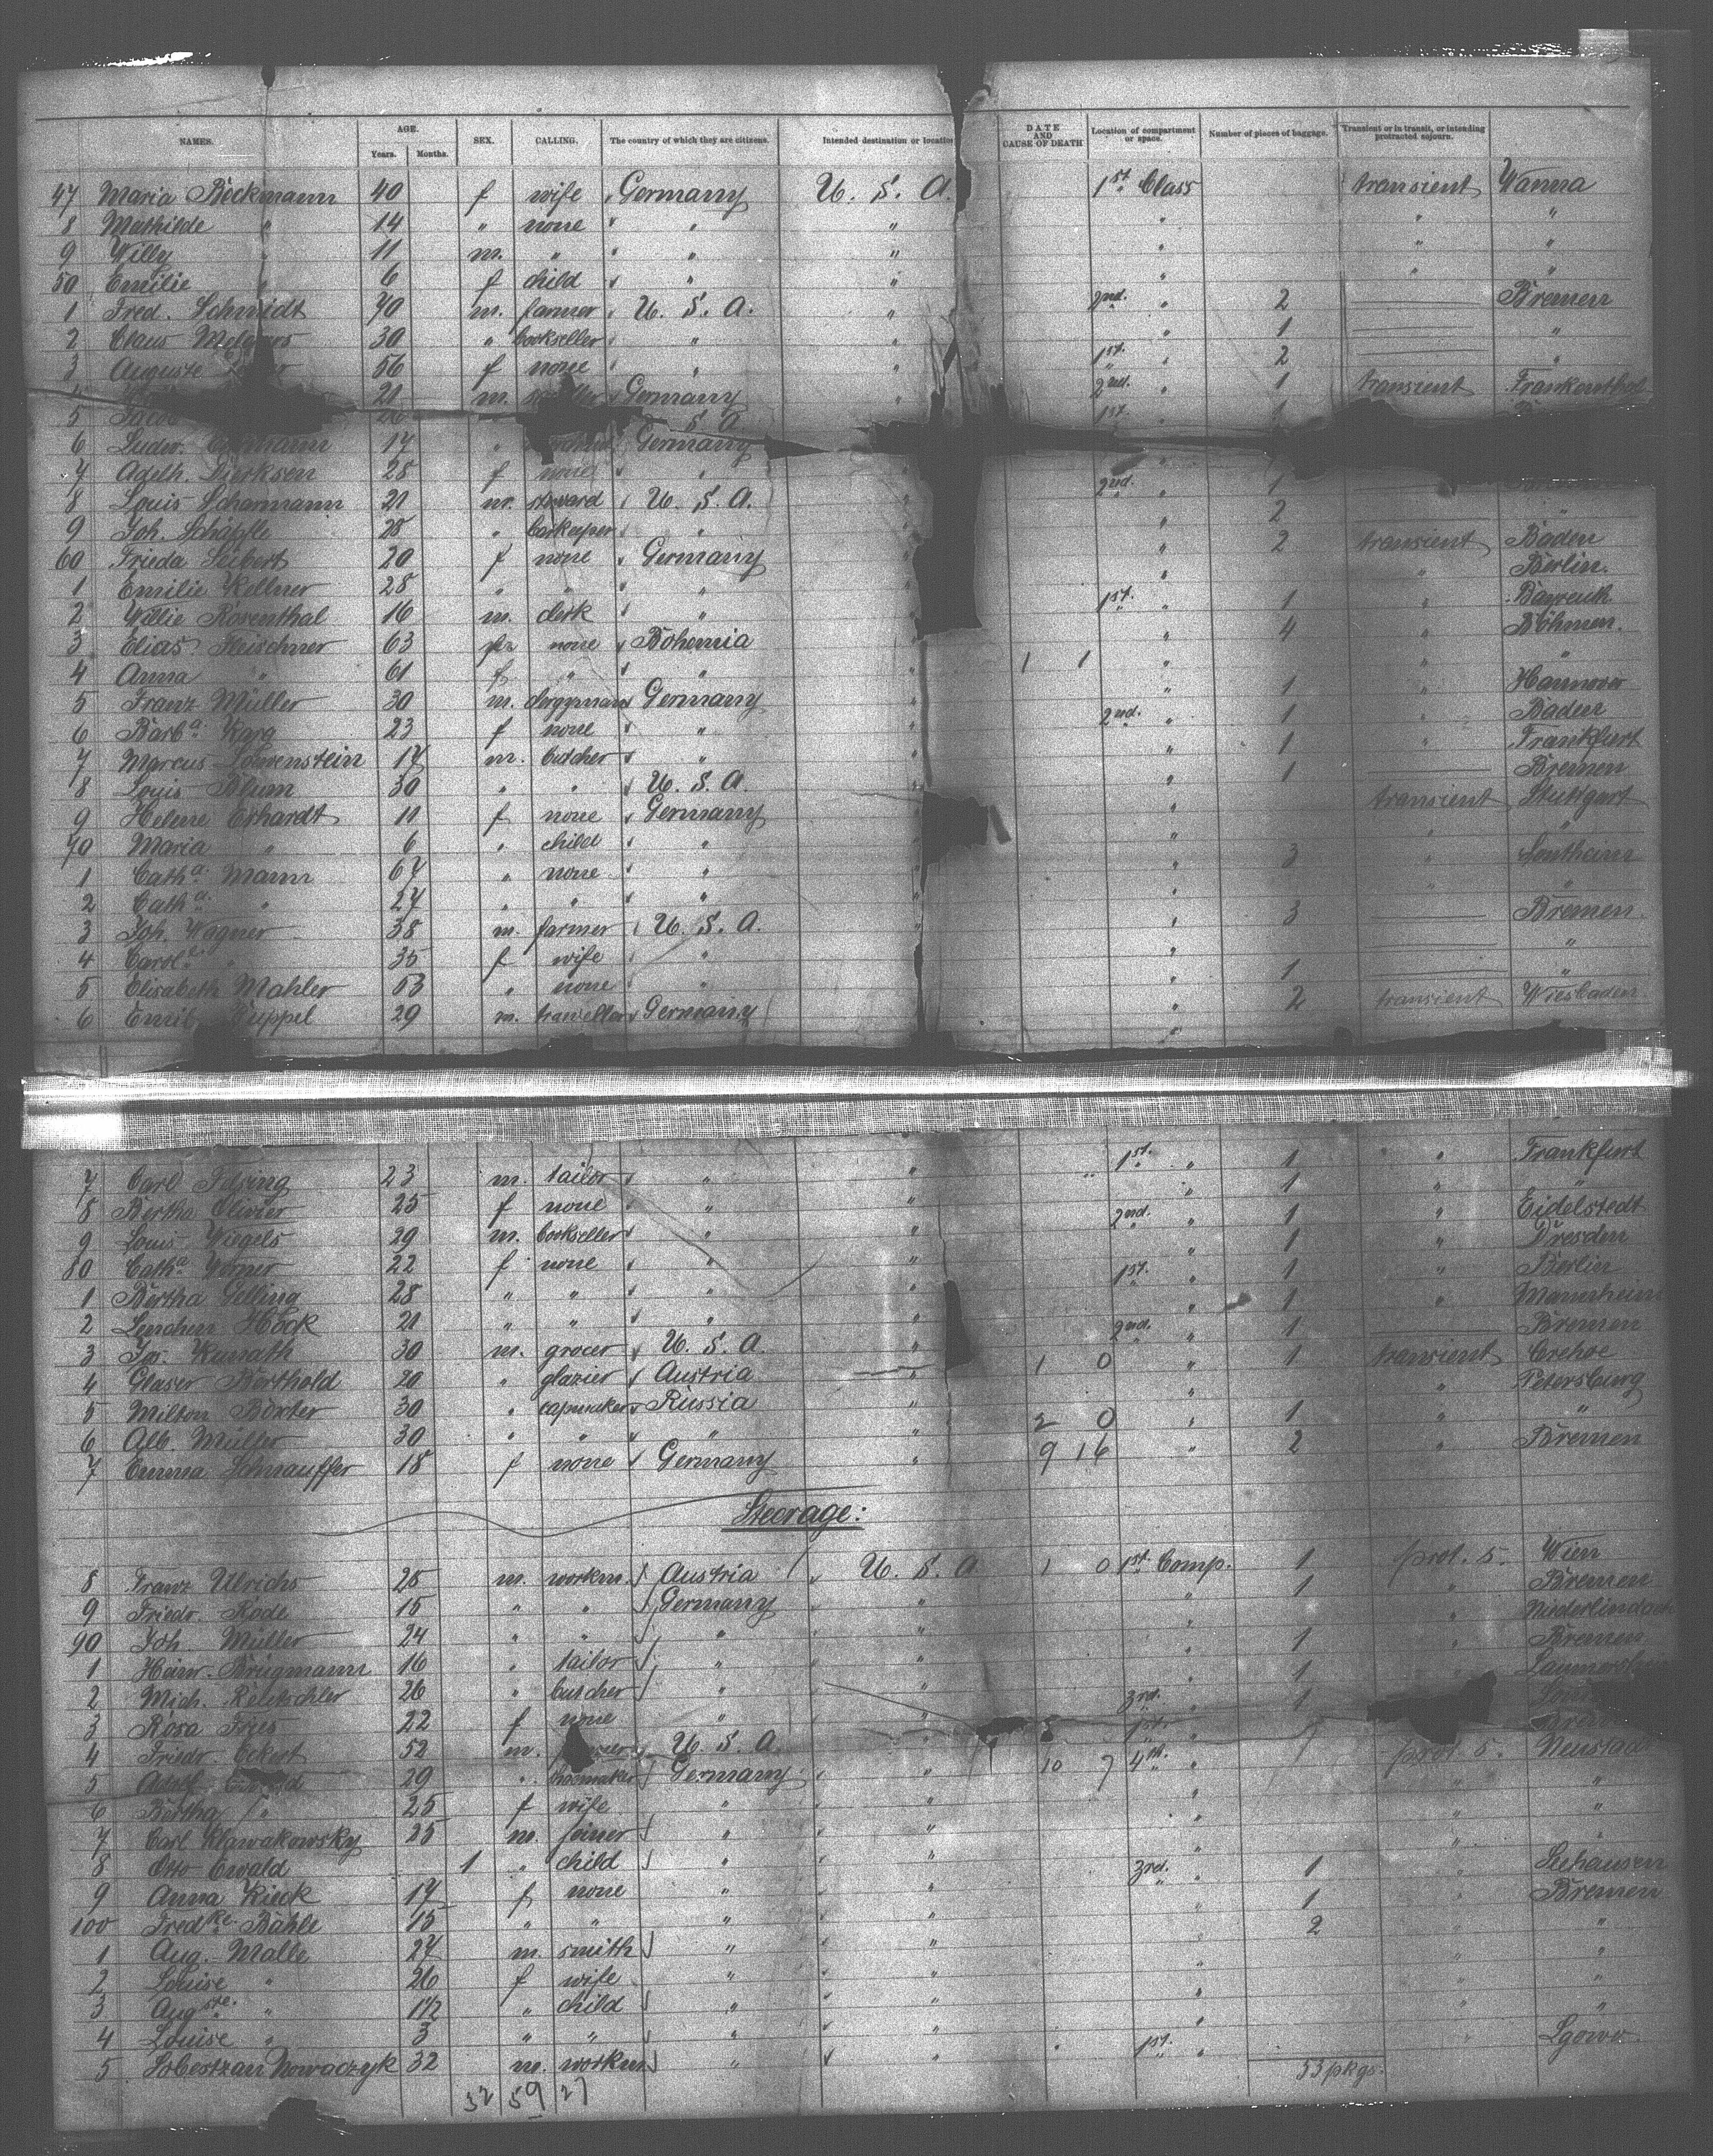 NAMES. AGE. Years. Months. SEX. CALLING. The country of which they are citizens. Intended destination or location DATE AND CAUSE OF DEATH Location of compartment or space. Number of pieces of baggage. Transient or in transit, or intending protracted sojourn.
47 Maria Beckmann 40 f wife Germany U. S. A. 1st. Class transient Wanna
8 Mathilde " 14 " none " " " " "
9 Willy " 11 m. " " " " " "
50 Emilie " 6 f child " " " " "
1 Fred. Schmidt 70 m. farmer U. S. A. " 2nd. " 2 Bremen
2 Claus 30 " bookseller " " " 1 "
3 Auguste 56 f none " " 1st. " 2 "
21 m. Germany " 2nd. " 1 transient Frankenthal
5 Jacob 26 S. A. 1st.
6 Ludw. 17 " Germany
7 Adelh. Dierksen 28 f none " "
8 Louis Scharmann 21 m. steward U. S. A. " 2nd. " 1
9 Joh. Schäpfle 28 " barkeeper " " " 2 "
60 Frieda Seibert 20 f none Germany " " 2 transient Baden
1 Emilie Kellner 28 " " " " " " Berlin.
2 Willie Rosenthal 16 m. clerk " " 1st. " 1 "
3 Elias Fleischner 63 none Bohemia " " 4 " Böhmen.
4 Anna " 61 f " " " 1 1 " " "
5 Franz Müller 30 m. clergyman Germany " " 1 " Hannover
6 Barba. Karg 23 f none " " 2nd. " 1 " Baden
7 Marcus Löwenstein 17 m. butcher " " " 1 " Frankfurt
8 Louis Blum 30 " " U. S. A. " " 1 Bremen
9 Helene Erhardt 11 f none Germany " " transient Stuttgart
70 Maria " 6 " child " " " " "
1 Catha. Mann 67 " none " " " 3 " Sontheim
2 Catha. " 27 " " " " " " "
3 Joh. Wagner 38 m. farmer U. S. A. " " 3 Bremen
4 " 35 f wife " " "
5 Elisabeth Mahler 53 " none " " 1 "
6 29 m. traveller Germany " 2 transient Wiesbaden
7 Carl 23 m. tailor " " 1st. " 1 " Frankfurt
8 Bertha Olivier 25 f none " " " 1 " "
9 Louis Wiegels 29 m. bookseller " " 2nd. " 1 " Eidelstedt
80 Catha. 22 f none " " " 1 " Dresden
1 Bertha Gelling 28 " " " " 1st. " 1 " Berlin
2 Lenchen Hock 21 " " " " " 1 " Mannheim
3 Jos. Kunath 30 m. grocer U. S. A. " 2nd. " 1 Bremen
4 Glaser Berthold 20 " glazier Austria " 1 0 " 1 transient
5 Milton 30 " capmaker Russia " " " Petersburg
6 Alb. Müller 30 " " " " 2 0 " 1 " "
7 Emma Schnauffer 18 f none Germany 9 16 " 2 " Bremen
Steerage:
8 Franz Ulrichs 25 m. workm. Austria U. S. A 1 0 1st. Comp. 1 prot. s. Wien
9 Friedr. Rode 15 " " Germany " " 1 " Bremen
90 Joh. Müller 24 " " " " " " Niederlindach
1 Heinr. Brügmann 16 " tailor " " " 1 " Bremen
2 Mich. Rentschler 26 " butcher " " " 1
3 Rosa Fries 22 f none " " 3rd. " 1
4 Friedr. Eckert 52 m. U. S. A. " 1st. "
5 Adolf 29 " shoemaker Germany " 10 7 4th. " prot. s.
6 Bertha " 25 f wife " " " " "
7 Carl Klawakowsky 25 m. joiner " " " " "
8 Otto Ewald 1 " child " " " " "
9 Anna Rieck 17 f none " " 3rd. " 1 " Seehausen
100 Fredke. Bähle 15 " " " " " 1 " Bremen
1 Aug. Malle 27 m. smith " " 2 " "
2 Louise " 26 f wife " " " " "
3 Augste. " 1½ " child " " " " "
4 Louise " 3 " " " " " " "
5 Sobestzan Nowaczyk 32 m. workm " " 1st. " " Lgowo
53 pkgs.
32 59 27